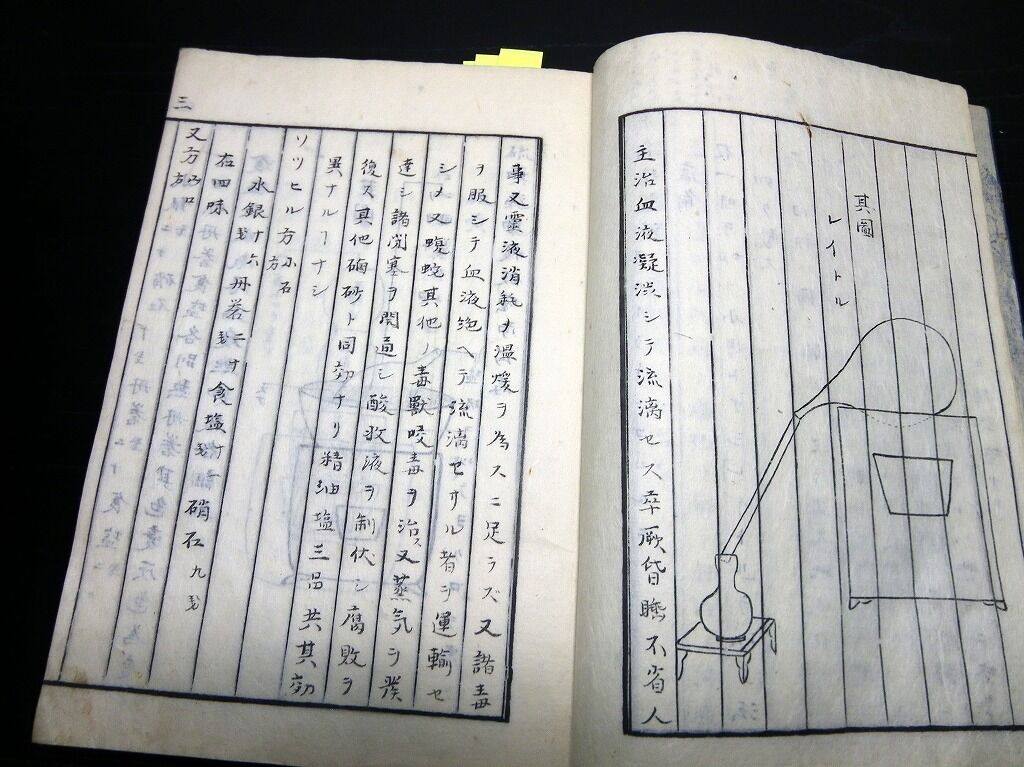 其圖
レイトル
主治血液凝渋シテ流漓セス卒厥昏睡不省人
事又靈液消耗メ温煖ヲ為スニ足ラズ又諸毒
ヲ服シテ血液絶ヘテ流漓セサル者ヲ運輸セ
シメ又蝮蛇其他ノ毒獣咬毒ヲ治ス又蒸気ヲ發
達シ諸閉塞ヲ開通シ酸敗液ヲ制伏シ腐敗ヲ
復ス其他硇砂ト同効ナリ精油塩三品共其効
異ナルーナシ
ソツヒル方
水銀十六 丹礬二十 食塩 硝石九
右四味
又方
三